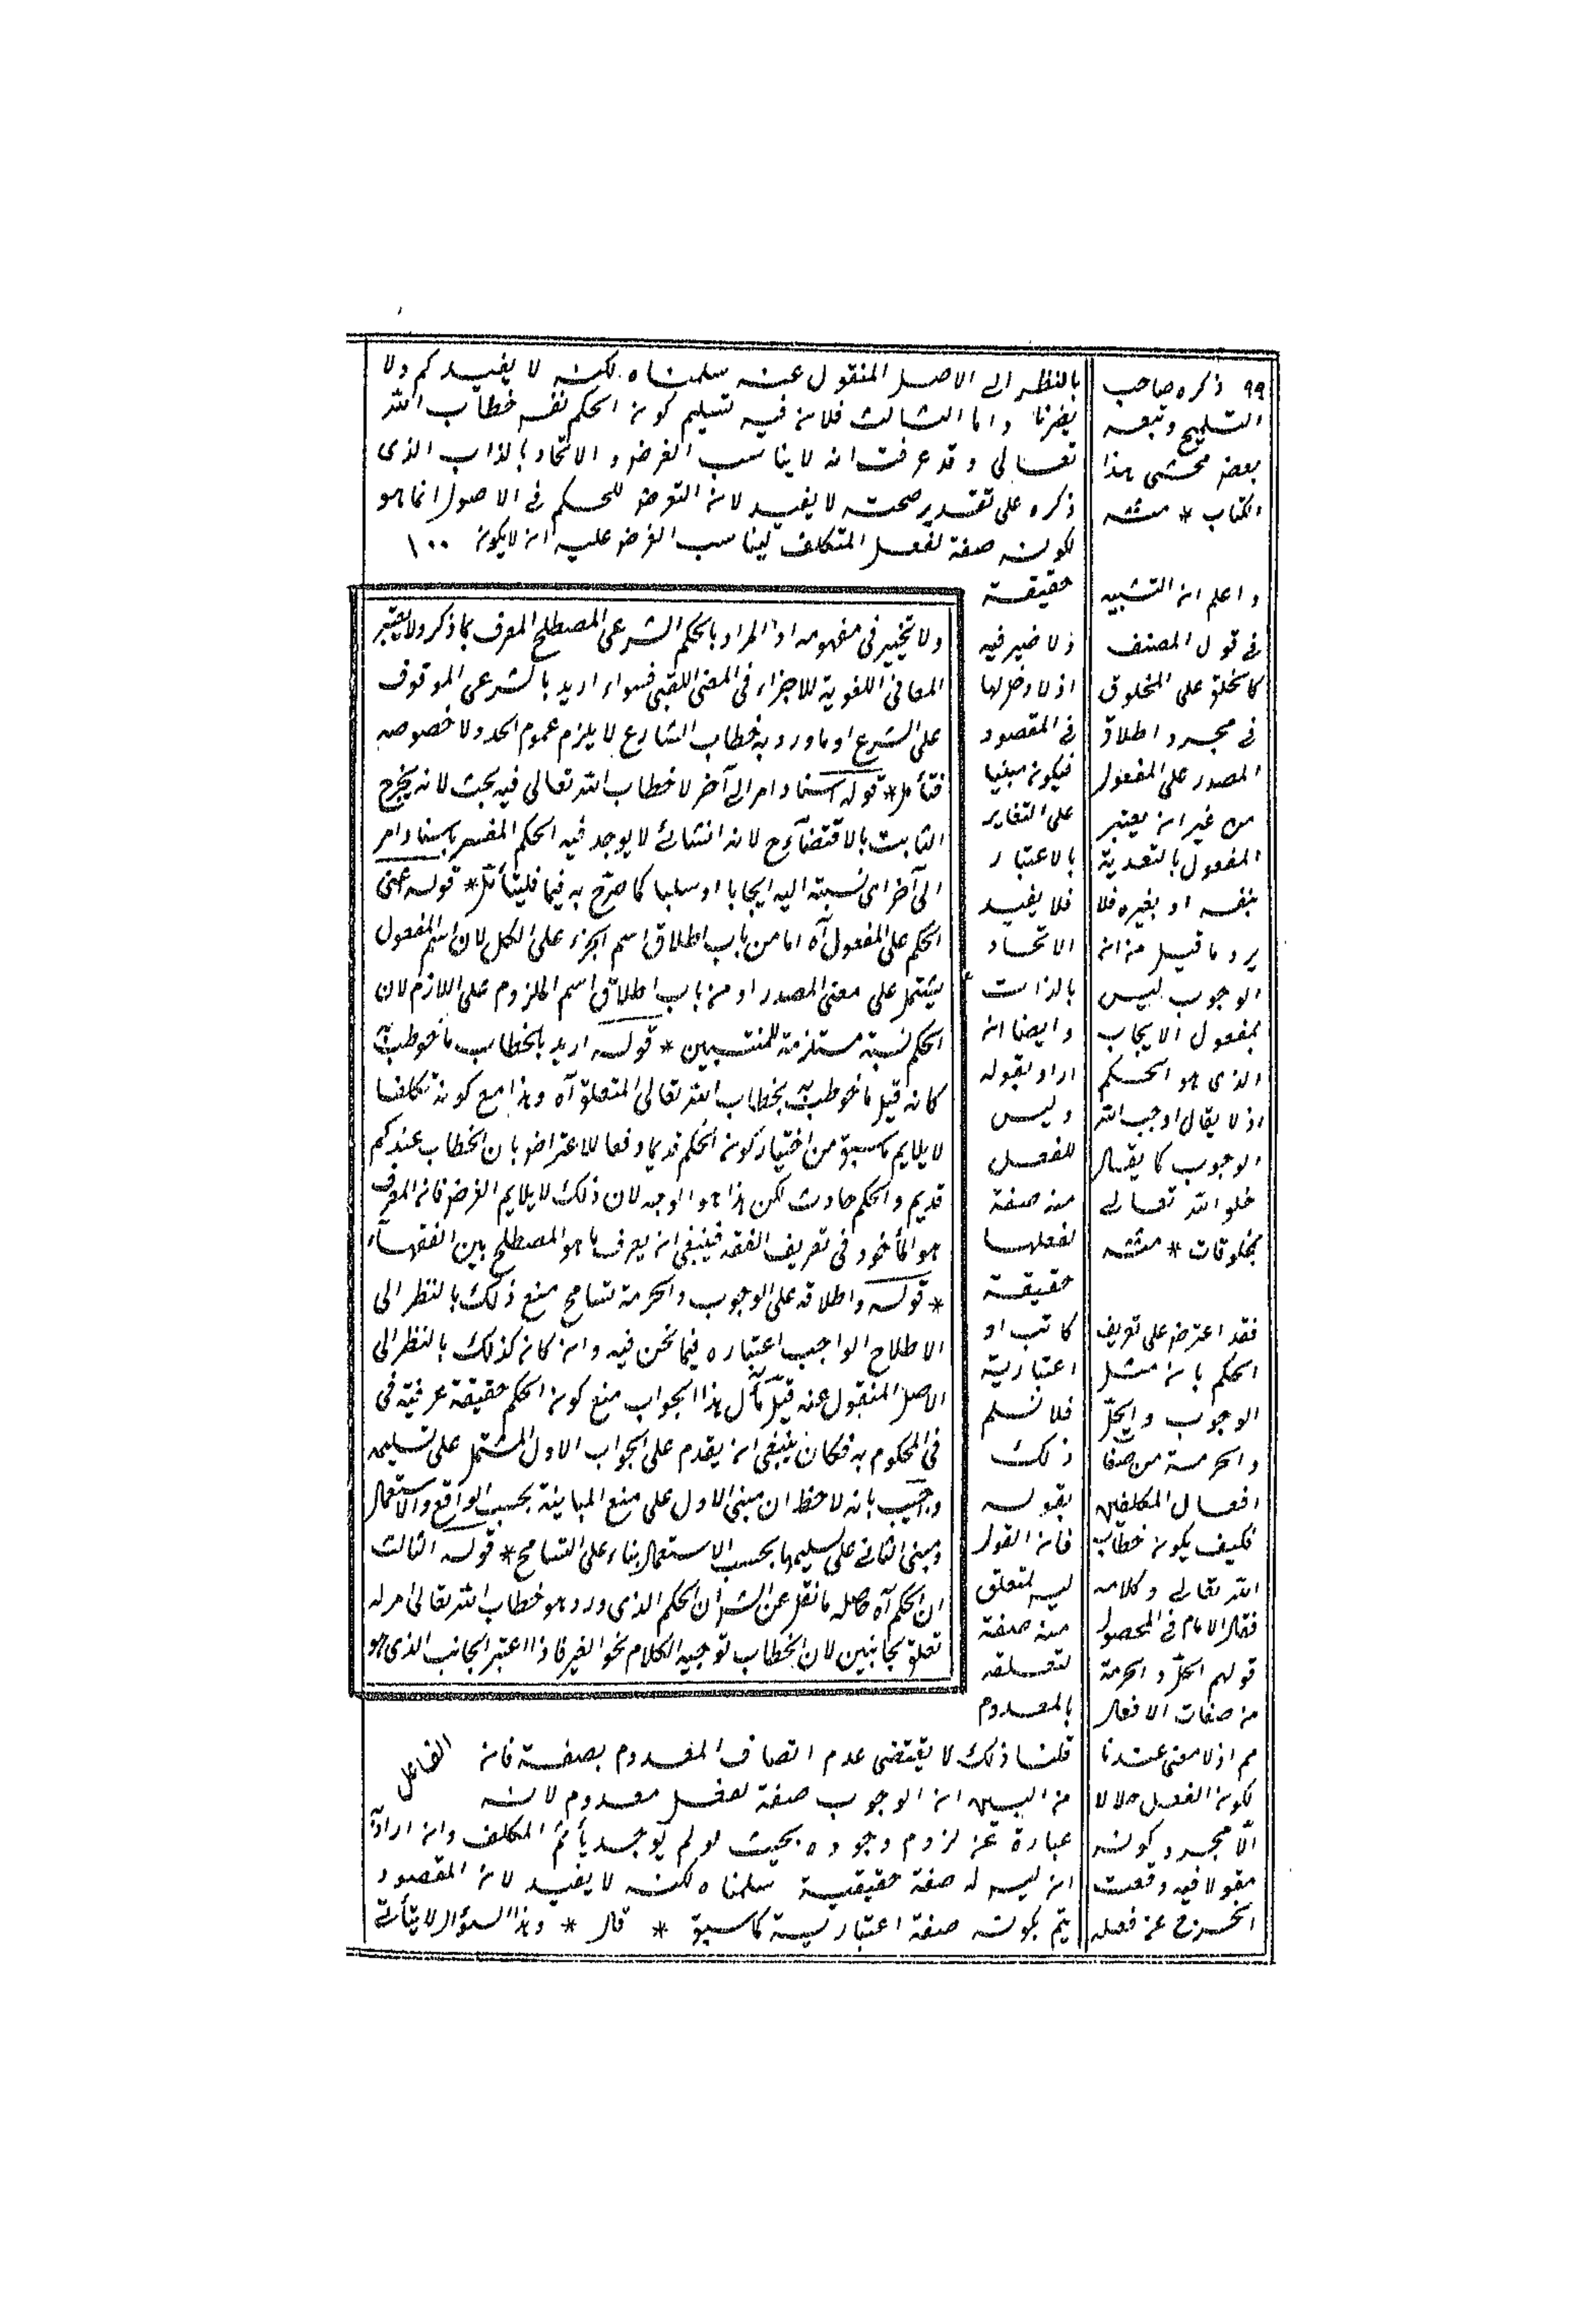 بالنظر الى الاصل المنقول عنه سلمناه لكنه لا يفيدكم ولا
يضرنا واما الثالث فلان فيه تسليم كون الحكم نفس خطاب الله
تعالى وقد عرفت انه لا يناسب الغرض والاتحاد بالذات الذى
ذكره على تقدير صحته لا يفيد لان التعرض للحكم فى الاصول انما هو
لكونه صفة لفعل المتكلف ليناسب الغرض عليه ان لا يكون ١٠٠
حقيقة
ولا ضير فيه
اذ لا دخل لها
فى المقصود
فيكون مبنيا
على التغاير
بالاعتبار
فلا يفيد
الاتحاد
بالذات
وايضا ان
اراد بقوله
وليس
للفعل
منه صفة
لفعلها
حقيقة
كاتب او
اعتبارية
فلا نسلم
ذلك
بقوله
فان القول
ليس لمتعلق
منه صفة
لتعلقه
بالمعدوم
قلنا ذلك لا يقتضى عدم اتصاف المعدوم بصفة فان
من البين ان الوجوب صفة لفعل معدوم لانه
عبارة عن لزوم وجوده بحيث لو لم يوجد يأثم المكلف وان اراد
ان ليس له صفة حقيقية سلمناه لكنه لا يفيد لان المقصود
يتم بكونه صفة اعتبارية كما سبق * قال * وهذا السؤال لا يتأتى
الفاعل
ولا تخيير فى مفهومه اذ المراد بالحكم الشرعى المصطلح المعرف بما ذكر ولا يعتبر
المعانى اللغوية للاجزاء فى المعنى اللقبى فسواء اريد بالشرعى الموقوف
على الشرع او ما ورد به خطاب الشارع لا يلزم عموم الحد ولا خصوصه
فتأمل * قوله اسناد امر الى آخر لا خطاب الله تعالى فيه بحث لانه يخرج
الثابت بالاقتضاء ح لانه انشائى لا يوجد فيه الحكم المفسر باسناد امر
الى آخر اى نسبته اليه ايجابا او سلبا كما صرح به فيما فليتأمل * قوله
الحكم على المفعول آه اما من باب اطلاق اسم الجزء على الكل لان اسم المفعول
يشتمل على معنى المصدر او من باب اطلاق اسم الملزوم على اللازم لان
الحكم نسبة مستلزمة للمنتسبين * قوله اريد بالخطاب ما خوطب به
كانه قيل ما خوطب به بخطاب الله تعالى المتعلق آه وهذا مع كونه تكلفا
لا يلايم ما سبق من اختيار كون الحكم قديما دفعا للاعتراض بان الخطاب عندكم
قديم والحكم حادث لكن هذا هو الوجه لان ذلك لا يلايم الغرض فان المعرف
هو المأخوذ فى تعريف الفقه فينبغى ان يعرف بما هو المصطلح بين الفقهاء
* قوله واطلاقه على الوجوب والحرمة تسامح منع ذلك بالنظر الى
الاطلاح الواجب اعتباره فيما نحن فيه وان كان كذلك بالنظر الى
الاصل المنقول عنه قيل مآل هذا الجواب منع كون الحكم حقيقة عرفية فى
فى المحكوم به فكان ينبغى ان يقدم على الجواب الاول المشتمل على تسليمه
واجيب بانه لاحظ ان مبنى الاول على منع المباينة بحسب الواقع والاستعمال
ومبنى الثانى على تسليمها بحسب الاستعمال بناء على التسامح * قوله الثالث
ان الحكم آه حاصله ما نقل عن الشر ان الحكم الذى ورد هو خطاب الله تعالى امر له
تعلق بجانبين لان الخطاب توجيه الكلام نحو الغير فاذا اعتبر الجانب الذى هو
٩٩ ذكره صاحب
التلويح وتبعه
بعض محشى هذا
الكتاب * منه
واعلم ان التشبيه
فى قول المصنف
كالخلق على المخلوق
فى مجرد اطلاق
المصدر على المفعول
من غير ان يعتبر
المفعول بالتعدية
بنفسه او بغيره فلا
يرد ما قيل من ان
الوجوب ليس
بمفعول الايجاب
الذى هو الحكم
اذ لا يقال اوجب الله
الوجوب كما يقال
خلق الله تعالى
مخلوقات * منه
فقد اعترض على تعريف
الحكم بان مثل
الوجوب والحل
والحرمة من صفات
افعال المكلفين
فكيف يكون خطاب
الله تعالى وكلامه
فقال الامام فى المحصول
قولهم الحل والحرمة
من صفات الافعال
مم اذ لا معنى عندنا
لكون الفعل حلالا
الا مجرد كونه
مقولا فيه وقعت
الحرج عن فعله